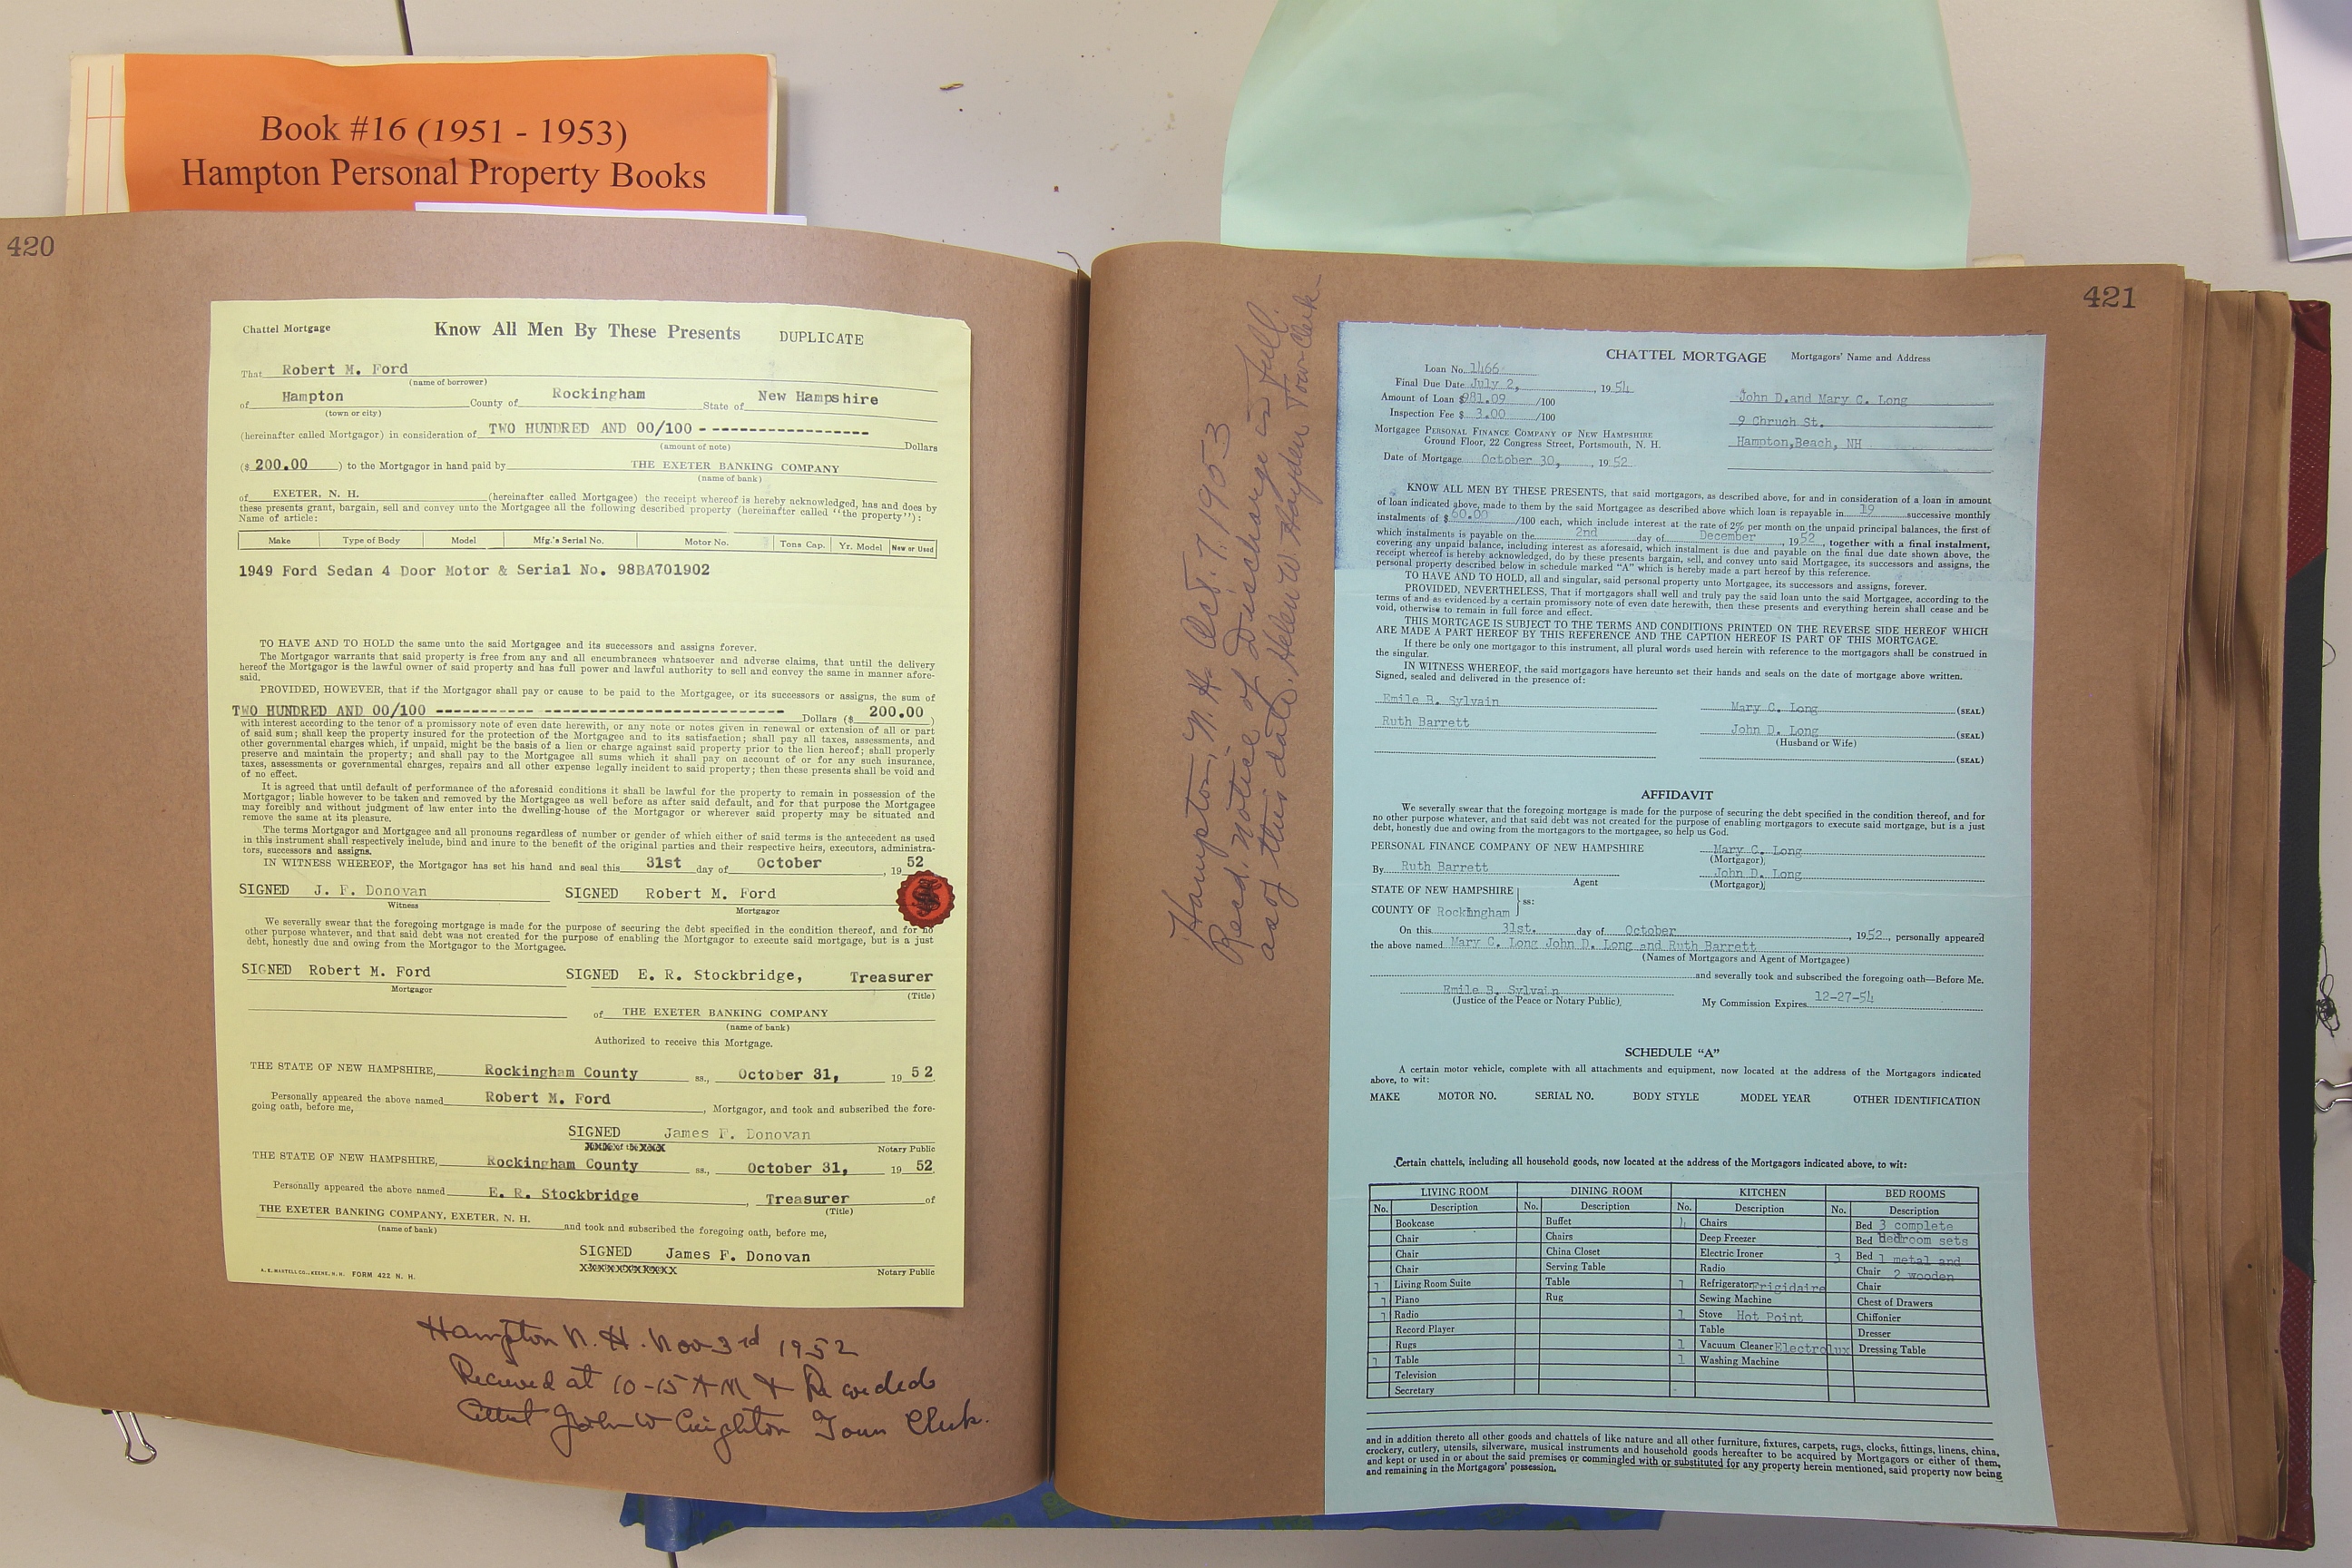 Book #16 (1951 - 1953)
Hampton Personal Property Books
420
Chattel Mortgage Know All Men By These Presents DUPLICATE
That Robert M. Ford
(name of borrower)
of Hampton County of Rockingham State of New Hampshire
(town or city)
(hereinafter called Mortgagor) in consideration of TWO HUNDRED AND 00/100 - ------------------ Dollars
(amount of note)
($ 200.00 ) to the Mortgagor in hand paid by THE EXETER BANKING COMPANY
(name of bank)
of EXETER, N. H. (hereinafter called Mortgagee) the receipt whereof is hereby acknowledged, has and does by
these presents grant, bargain, sell and convey unto the Mortgagee all the following described property (hereinafter called "the property"):
Name of article:
Make Type of Body Model Mfg.'s Serial No. Motor No. Tons Cap. Yr. Model New or Used
1949 Ford Sedan 4 Door Motor & Serial No. 98BA701902
TO HAVE AND TO HOLD the same unto the said Mortgagee and its successors and assigns forever.
The Mortgagor warrants that said property is free from any and all encumbrances whatsoever and adverse claims, that until the delivery
hereof the Mortgagor is the lawful owner of said property and has full power and lawful authority to sell and convey the same in manner afore-
said.
PROVIDED, HOWEVER, that if the Mortgagor shall pay or cause to be paid to the Mortgagee, or its successors or assigns, the sum of
TWO HUNDRED AND 00/100 ---------- ------------------------- Dollars ($ 200.00 )
with interest according to the tenor of a promissory note of even date herewith, or any note or notes given in renewal or extension of all or part
of said sum; shall keep the property insured for the protection of the Mortgagee and to its satisfaction; shall pay all taxes, assessments, and
other governmental charges which, if unpaid, might be the basis of a lien or charge against said property prior to the lien hereof; shall properly
preserve and maintain the property; and shall pay to the Mortgagee all sums which it shall pay on account of or for any such insurance,
taxes, assessments or governmental charges, repairs and all other expense legally incident to said property; then these presents shall be void and
of no effect.
It is agreed that until default of performance of the aforesaid conditions it shall be lawful for the property to remain in possession of the
Mortgagor; liable however to be taken and removed by the Mortgagee as well before as after said default, and for that purpose the Mortgagee
may forcibly and without judgment of law enter into the dwelling-house of the Mortgagor or wherever said property may be situated and
remove the same at its pleasure.
The terms Mortgagor and Mortgagee and all pronouns regardless of number or gender of which either of said terms is the antecedent as used
in this instrument shall respectively include, bind and inure to the benefit of the original parties and their respective heirs, executors, administra-
tors, successors and assigns.
IN WITNESS WHEREOF, the Mortgagor has set his hand and seal this 31st day of October , 19 52
SIGNED J. F. Donovan SIGNED Robert M. Ford
Witness Mortgagor
We severally swear that the foregoing mortgage is made for the purpose of securing the debt specified in the condition thereof, and for no
other purpose whatever, and that said debt was not created for the purpose of enabling the Mortgagor to execute said mortgage, but is a just
debt, honestly due and owing from the Mortgagor to the Mortgagee.
SIGNED Robert M. Ford SIGNED E. R. Stockbridge, Treasurer
Mortgagor (Title)
of THE EXETER BANKING COMPANY
(name of bank)
Authorized to receive this Mortgage.
THE STATE OF NEW HAMPSHIRE, Rockingham County ss., October 31, 19 52
Personally appeared the above named Robert M. Ford , Mortgagor, and took and subscribed the fore-
going oath, before me,
SIGNED James F. Donovan
Notary Public
THE STATE OF NEW HAMPSHIRE, Rockingham County ss., October 31, 19 52
Personally appeared the above named E. R. Stockbridge , Treasurer of
(Title)
THE EXETER BANKING COMPANY, EXETER, N. H. and took and subscribed the foregoing oath, before me,
(name of bank)
SIGNED James F. Donovan
XXXXXXXXXXX Notary Public
A. E. MARTELL CO., KEENE, N. H. FORM 422 N. H.
Hampton N. H. Nov 3rd 1952
Recieved at 10-15 AM & Recorded
Attest John W Creighton Town Clerk.
421
Hampton, N. H. Oct. 7, 1953
Recd. notice of Discharge in full
as of this date. Helen W. Hayden Town Clerk
CHATTEL MORTGAGE Mortgagors' Name and Address
Loan No. 1466
Final Due Date July 2, , 19 54
Amount of Loan $981.09 /100 John D.and Mary C. Long
Inspection Fee $ 3.00 /100 9 Chruch St.
Mortgagee PERSONAL FINANCE COMPANY OF NEW HAMPSHIRE
Ground Floor, 22 Congress Street, Portsmouth, N. H. Hampton,Beach, NH
Date of Mortgage October 30, , 19 52
KNOW ALL MEN BY THESE PRESENTS, that said mortgagors, as described above, for and in consideration of a loan in amount
of loan indicated above, made to them by the said Mortgagee as described above which loan is repayable in 19 successive monthly
instalments of $ 60.00 /100 each, which include interest at the rate of 2% per month on the unpaid principal balances, the first of
which instalments is payable on the 2nd day of December , 1952 , together with a final instalment,
covering any unpaid balance, including interest as aforesaid, which instalment is due and payable on the final due date shown above, the
receipt whereof is hereby acknowledged, do by these presents bargain, sell, and convey unto said Mortgagee, its successors and assigns, the
personal property described below in schedule marked "A" which is hereby made a part hereof by this reference.
TO HAVE AND TO HOLD, all and singular, said personal property unto Mortgagee, its successors and assigns, forever.
PROVIDED, NEVERTHELESS, That if mortgagors shall well and truly pay the said loan unto the said Mortgagee, according to the
terms of and as evidenced by a certain promissory note of even date herewith, then these presents and everything herein shall cease and be
void, otherwise to remain in full force and effect.
THIS MORTGAGE IS SUBJECT TO THE TERMS AND CONDITIONS PRINTED ON THE REVERSE SIDE HEREOF WHICH
ARE MADE A PART HEREOF BY THIS REFERENCE AND THE CAPTION HEREOF IS PART OF THIS MORTGAGE.
If there be only one mortgagor to this instrument, all plural words used herein with reference to the mortgagors shall be construed in
the singular.
IN WITNESS WHEREOF, the said mortgagors have hereunto set their hands and seals on the date of mortgage above written.
Signed, sealed and delivered in the presence of:
Emile B. Sylvain Mary C. Long (SEAL)
Ruth Barrett John D. Long (SEAL)
(Husband or Wife)
(SEAL)
AFFIDAVIT
We severally swear that the foregoing mortgage is made for the purpose of securing the debt specified in the condition thereof, and for
no other purpose whatever, and that said debt was not created for the purpose of enabling mortgagors to execute said mortgage, but is a just
debt, honestly due and owing from the mortgagors to the mortgagee, so help us God.
PERSONAL FINANCE COMPANY OF NEW HAMPSHIRE Mary C. Long
(Mortgagor)
By Ruth Barrett John D. Long
Agent (Mortgagor)
STATE OF NEW HAMPSHIRE
ss:
COUNTY OF Rockingham
On this 31st. day of October , 1952 , personally appeared
the above named Mary C. Long John D. Long and Ruth Barrett
(Names of Mortgagors and Agent of Mortgagee)
and severally took and subscribed the foregoing oath—Before Me.
Emile B. Sylvain
(Justice of the Peace or Notary Public) My Commission Expires 12-27-54
SCHEDULE "A"
A certain motor vehicle, complete with all attachments and equipment, now located at the address of the Mortgagors indicated
above, to wit:
MAKE MOTOR NO. SERIAL NO. BODY STYLE MODEL YEAR OTHER IDENTIFICATION
Certain chattels, including all household goods, now located at the address of the Mortgagors indicated above, to wit:
LIVING ROOM DINING ROOM KITCHEN BED ROOMS
No. Description No. Description No. Description No. Description
Bookcase Buffet 4 Chairs Bed 3 complete
Chair Chairs Deep Freezer Bed Bedroom sets
Chair China Closet Electric Ironer 3 Bed 1 metal and
Chair Serving Table Radio Chair 2 wooden
1 Living Room Suite Table 1 Refrigerator Frigidaire Chair
1 Piano Rug Sewing Machine Chest of Drawers
1 Radio 1 Stove Hot Point Chiffonier
Record Player Table Dresser
Rugs 1 Vacuum Cleaner Electrolux Dressing Table
1 Table 1 Washing Machine
Television
Secretary
and in addition thereto all other goods and chattels of like nature and all other furniture, fixtures, carpets, rugs, clocks, fittings, linens, china,
crockery, cutlery, utensils, silverware, musical instruments and household goods hereafter to be acquired by Mortgagors or either of them,
and kept or used in or about the said premises or commingled with or substituted for any property herein mentioned, said property now being
and remaining in the Mortgagors' possession.